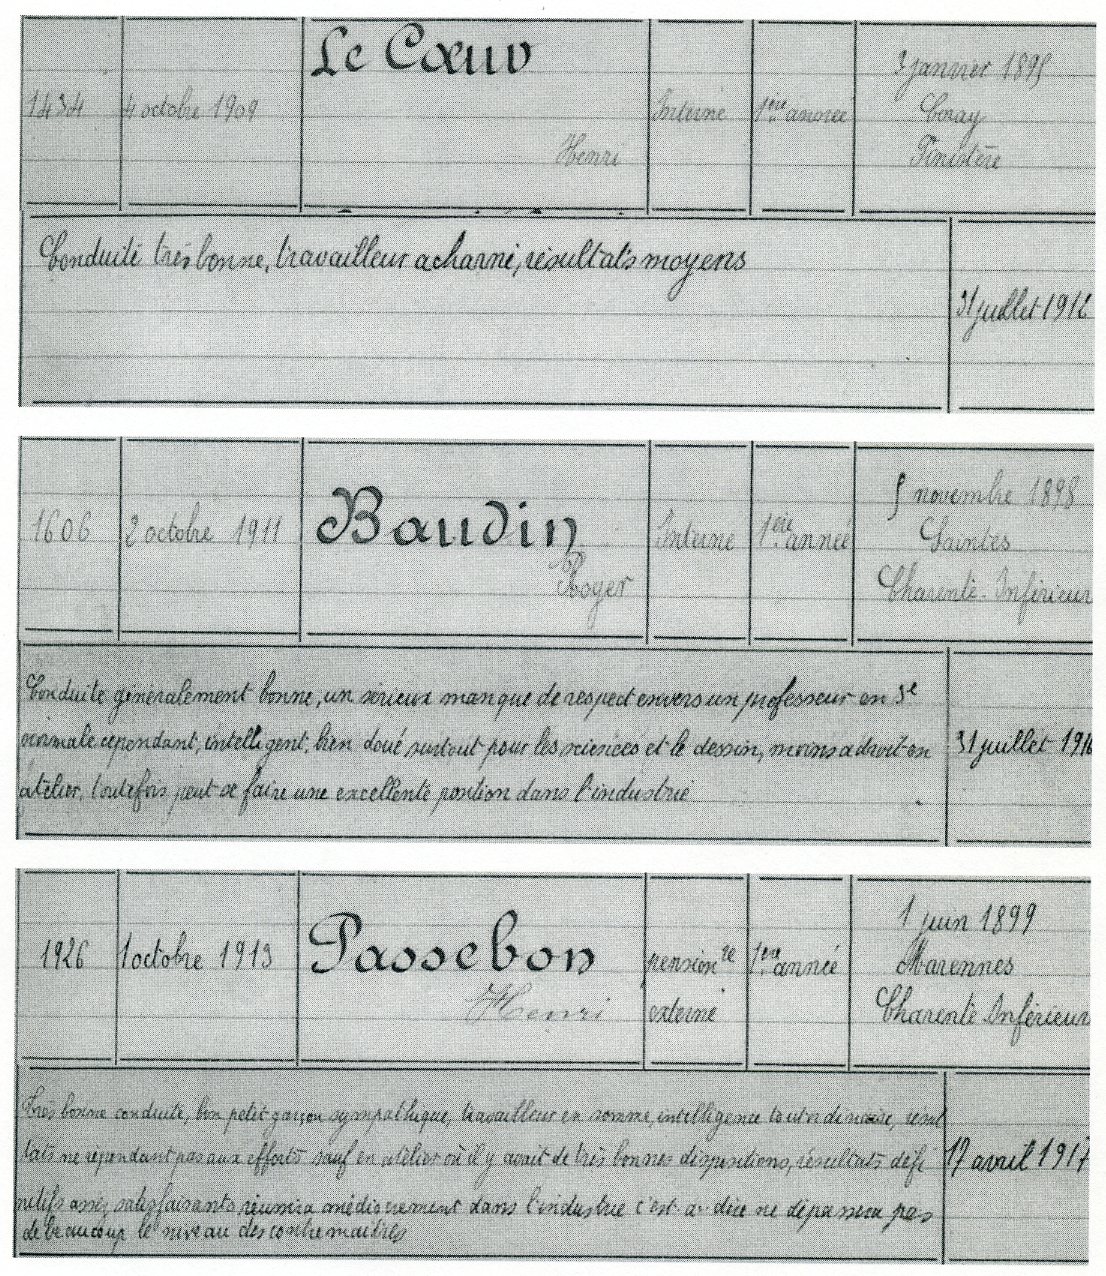 Le Cœur
1434 4 octobre 1909 Interne 1ère année 3 janvier 1895
Coray
Henri Finistère
Conduite très bonne, travailleur acharné, résultats moyens
31 juillet 1912
Baudin
1606 2 octobre 1911 Interne 1ère année 5 novembre 1898
Saintes
Roger Charente-Inférieur
Conduite généralement bonne, un sérieux manque de respect envers un professeur en 3e
normale cependant, intelligent, bien doué surtout pour les sciences et le dessin, moins adroit en
atelier, toutefois peut se faire une excellente position dans l'industrie
31 juillet 1916
Passebon
1926 1 octobre 1913 pensionre 1ère année 1 juin 1899
Marennes
Henri externe Charente Inférieur
Très bonne conduite, bon petit garçon sympathique, travailleur en somme, intelligence tout ordinaire, résul
tats ne répendant pas aux efforts sauf en atelier où il y avait de très bonnes dispositions, résultats défi
nitifs assez satisfaisants, réussira médiocrement dans l'industrie c'est à dire ne dépassera pas
de beaucoup le niveau des contremaîtres
17 avril 1917